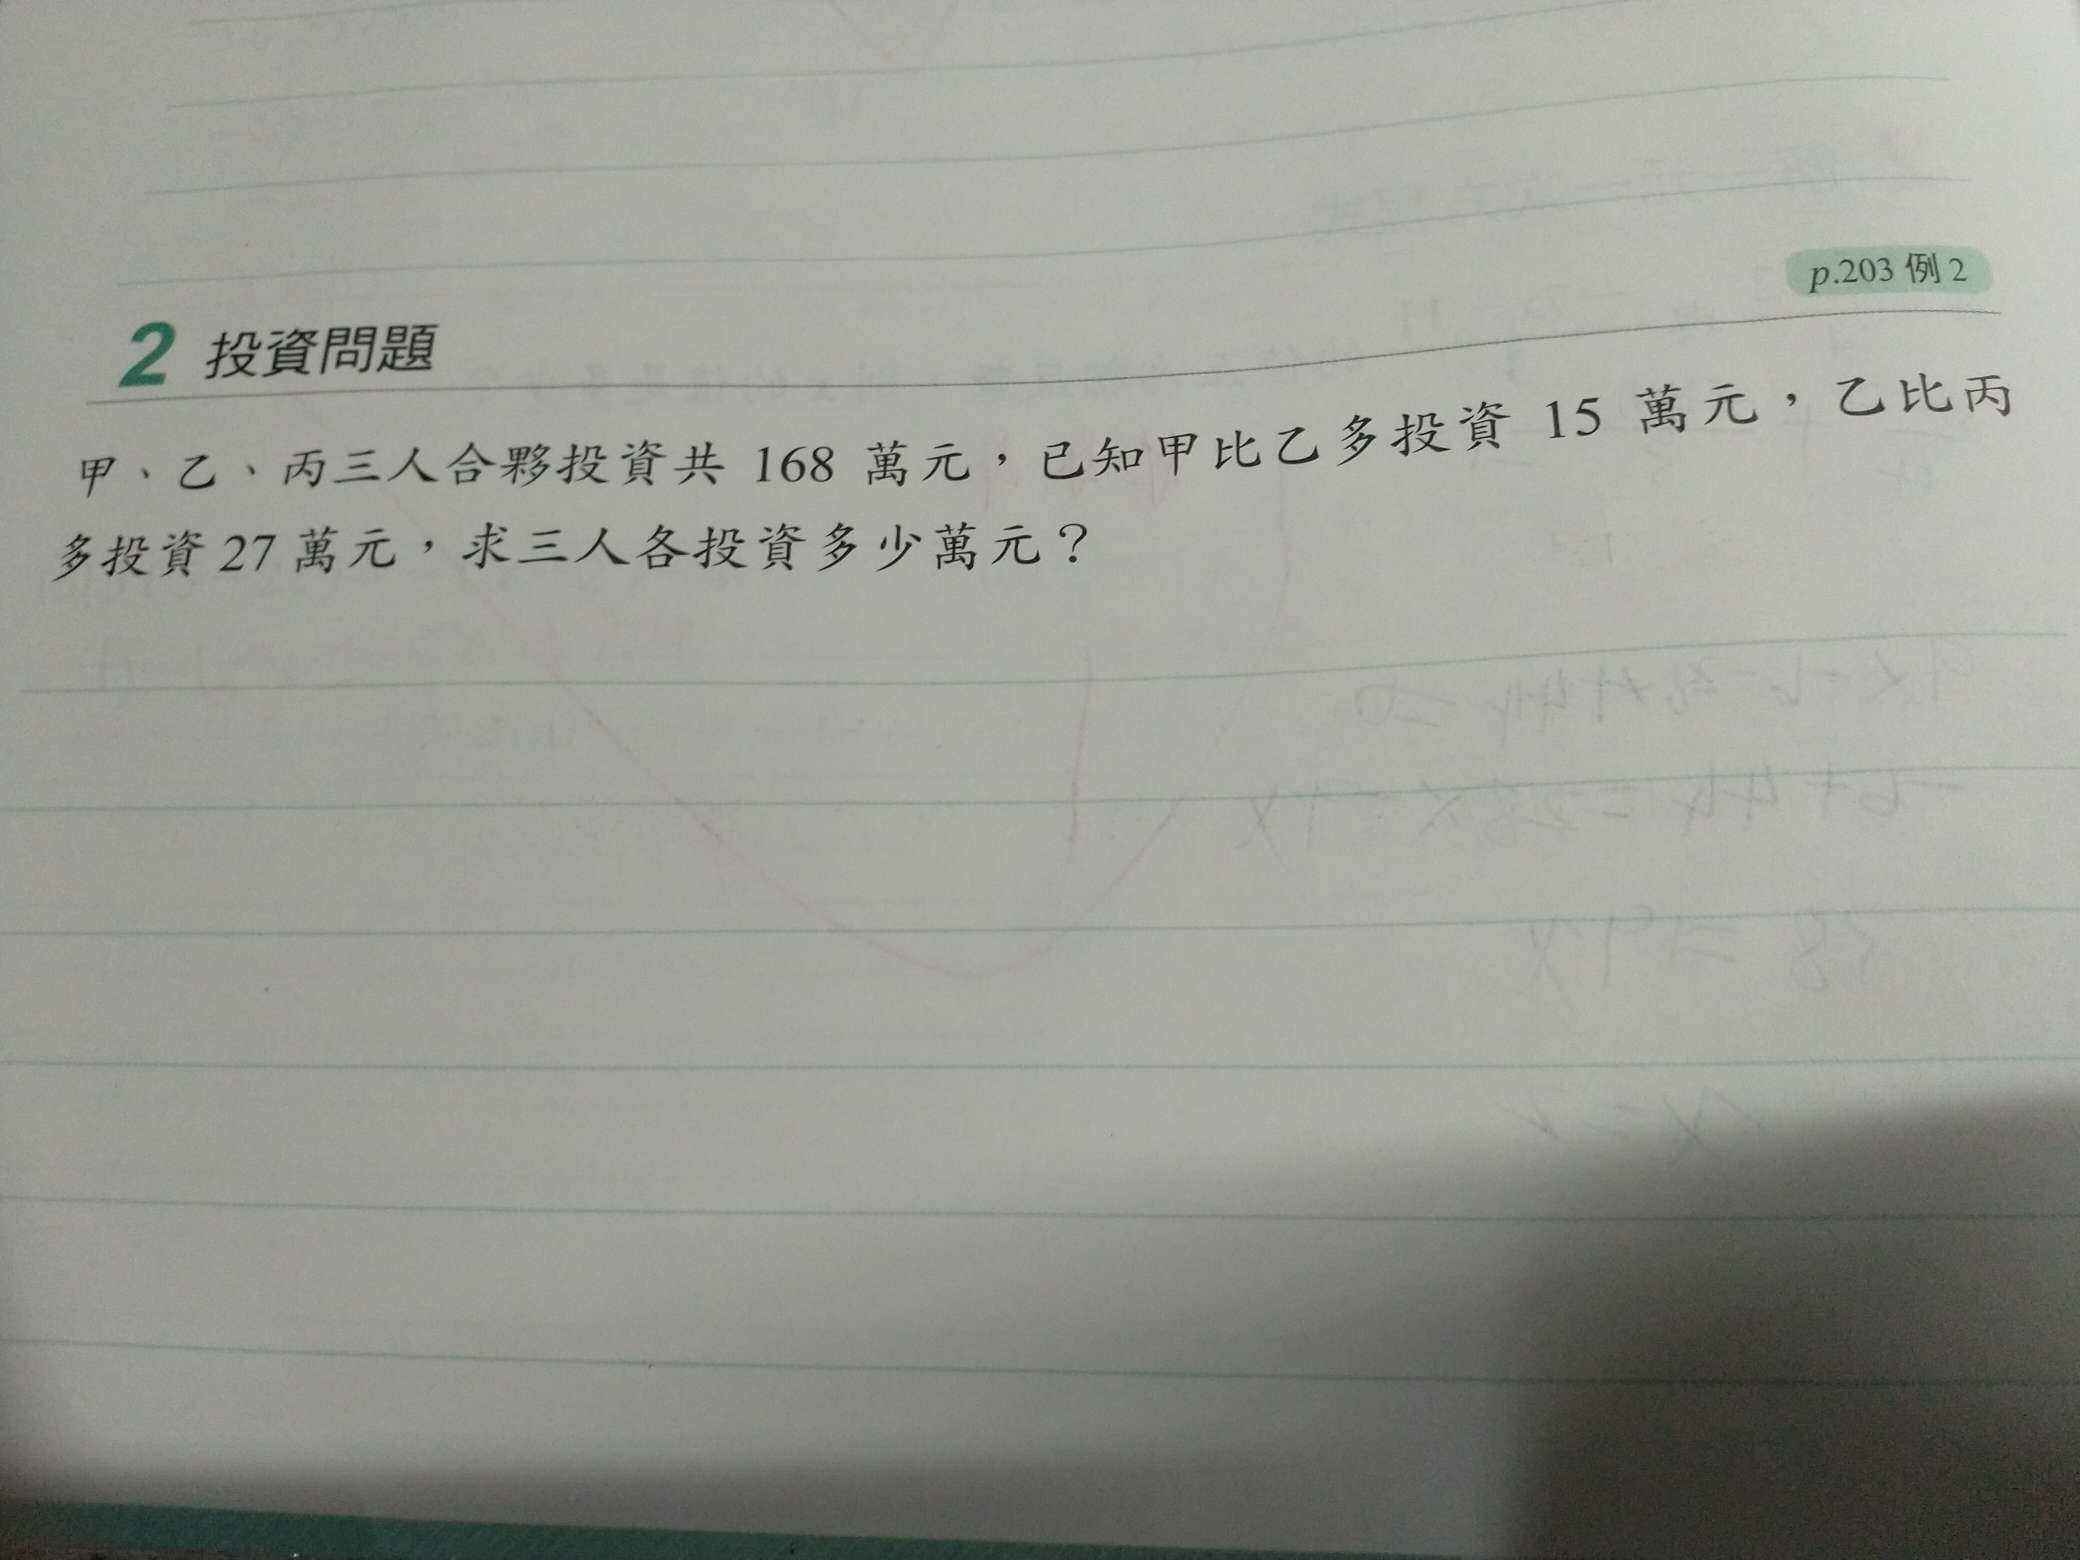 p.203 例 2
2 投資問題
甲、乙、丙三人合夥投資共 168 萬元，已知甲比乙多投資 15 萬元，乙比丙
多投資 27 萬元，求三人各投資多少萬元？